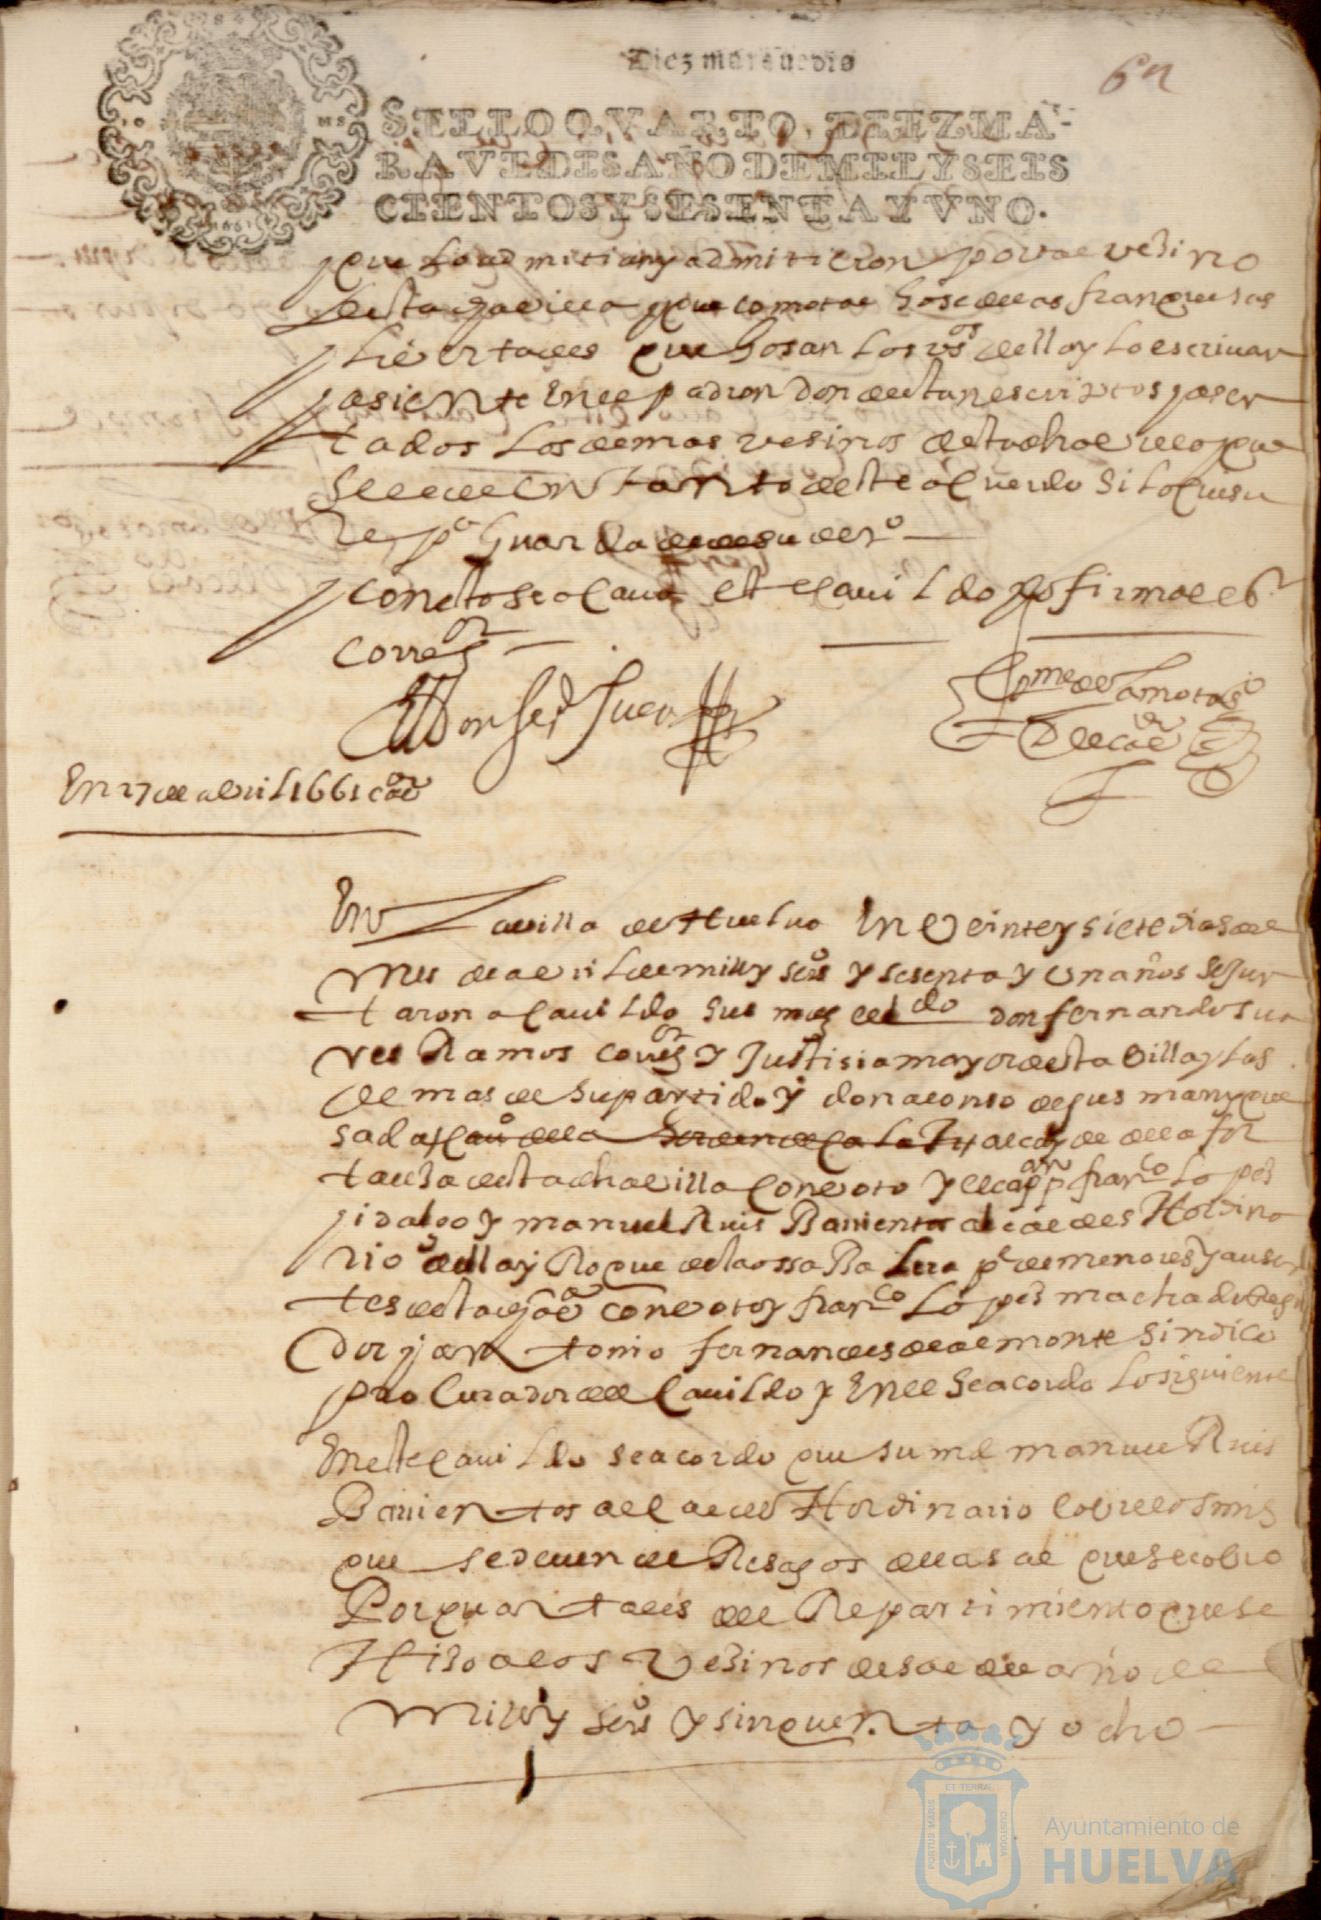 Diez marauedis
6
SELLO QVARTO, DIEZ MA-
RAVEDIS AÑO DE MIL Y SEIS
CIENTOS Y SESENTA Y VNO.
que lo admitian y admitieron por tal vesino
desta villa y que como tal gose de las franquesas
y livertades que gosan los vsos della y lo escriuan
y asiente en el padron donde estan escriptos y aser
tados los demas vesinos desta dha villa y que
se le de en tanto deste acuerdo si lo quisie
re pa guarda de su dero
y con esto se acauo este cauildo y lo firmo el sr
corregor
Don ferdo Suares
En 27 de abril 1661
En la villa de Huelua en veinte y siete dias del
mes de abril de mill y seiso y sesenta y un años se jun
taron a cauildo sus mds el ldo don fernando sua
res Ramos corregor y Justisia mayor desta villa y las
demas de su partido y don alonso de gusman y que
sada cauo de la horden de Calatra alcayde de la for
talesa desta dha villa con voto y el capan franco lopes
hidalgo y manuel Ruis Barrientos alcaldes Hordina
rios della y Roque de la ossa Ba pe de menores y ausen
tes desta con voto y franco Lopes machado Regi
dor y an tonio fernandes de almonte sindico
procurador del cauildo y en el se acordo lo siguiente
En este cauildo se acordo que su md manuel Ruis
Barrientos alcalde Hordinario cobre los mrs
que se deuen de Resagos de la sal que se cobro
Por quar tales del Repartimiento que se
Hiso a los vesinos desde el año de
mill y seiso y sinquenta y ocho
ET TERRAE
PORTUS MARIS
CUSTODIA
Ayuntamiento de
HUELVA